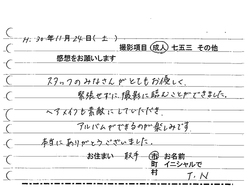 H. 30年11月24日(土)
撮影項目 成人 七五三 その他
感想をお願いします
スタッフのみなさんがとてもお優しく、
緊張せずに、撮影に臨むことができました。
ヘアメイクも素敵にしていただき、
アルバムができるのが楽しみです。
本当にありがとうございました。
お住まい 市 お名前
町 イニシャルで
村 T.N